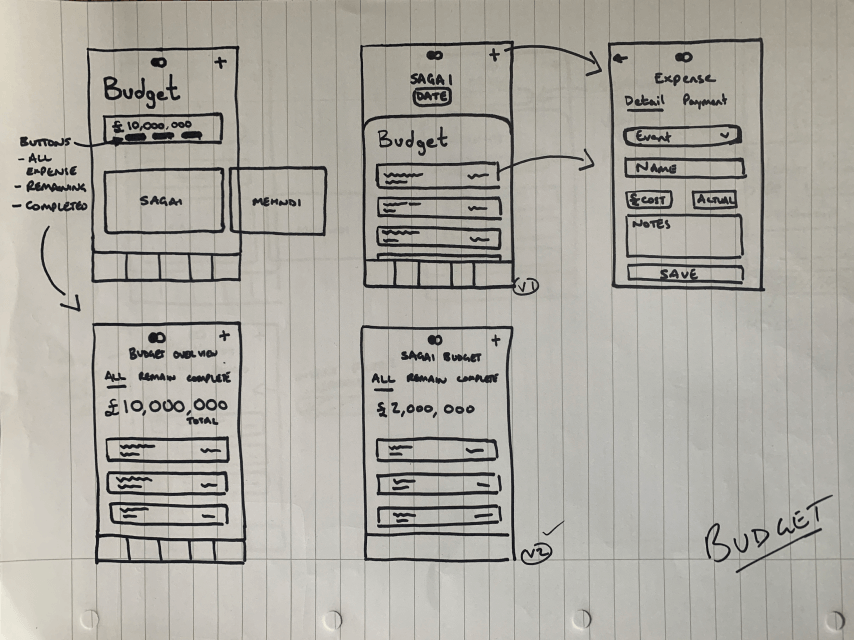 Budget
+
£10,000,000
BUTTONS
- ALL
EXPENSE
- REMAINING
- COMPLETED
SAGAI
MEHNDI
+
SAGAI
DATE
Budget
V1
←
Expense
Detail Payment
Event
NAME
£COST ACTUAL
NOTES
SAVE
+
BUDGET OVERVIEW
ALL REMAIN COMPLETE
£10,000,000
TOTAL
+
SAGAI BUDGET
ALL REMAIN COMPLETE
£2,000,000
V2
BUDGET